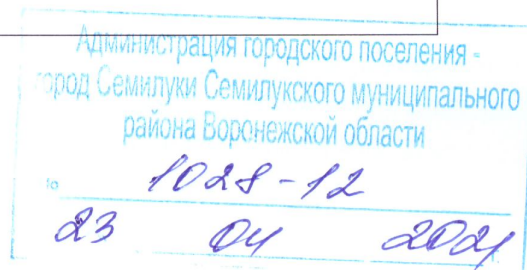 Администрация городского поселения -
город Семилуки Семилукского муниципального
района Воронежской области
№ 1028-12
23 04 2021